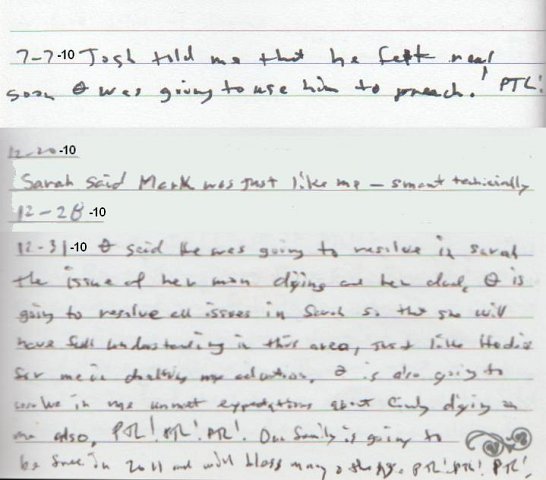 7-7-10 Josh told me that he felt real
soon θ was going to use him to preach! PTL!
12-20-10
Sarah said Mark was just like me - smart technically
12-28-10
12-31-10 θ said he was going to resolve in Sarah
the issue of her mom dying and her dad, θ is
going to resolve all issues in Sarah so that she will
have full understanding in this area, just like He did
for me in my education. θ is also going to
in me unmet expectations about Cindy dying on
me also, PTL! PTL! PTL! Our family is going to
be free in 2011 and will bless many others. PTL! PTL! PTL!